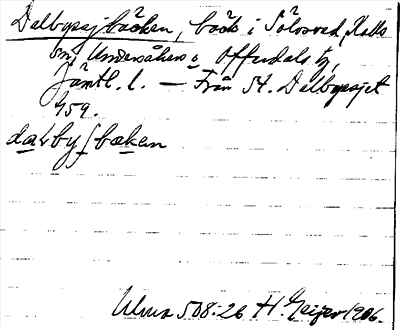 Dalbyssjöbäcken, bäck i Sölvsved, Kalls
sn, Undersåkers o Offerdals tg,
Jämtl. l. — Från St. Dalbyssjet
459.
dalbyʃbækɛn
Ulma 508:26 H. Geijer 1906.